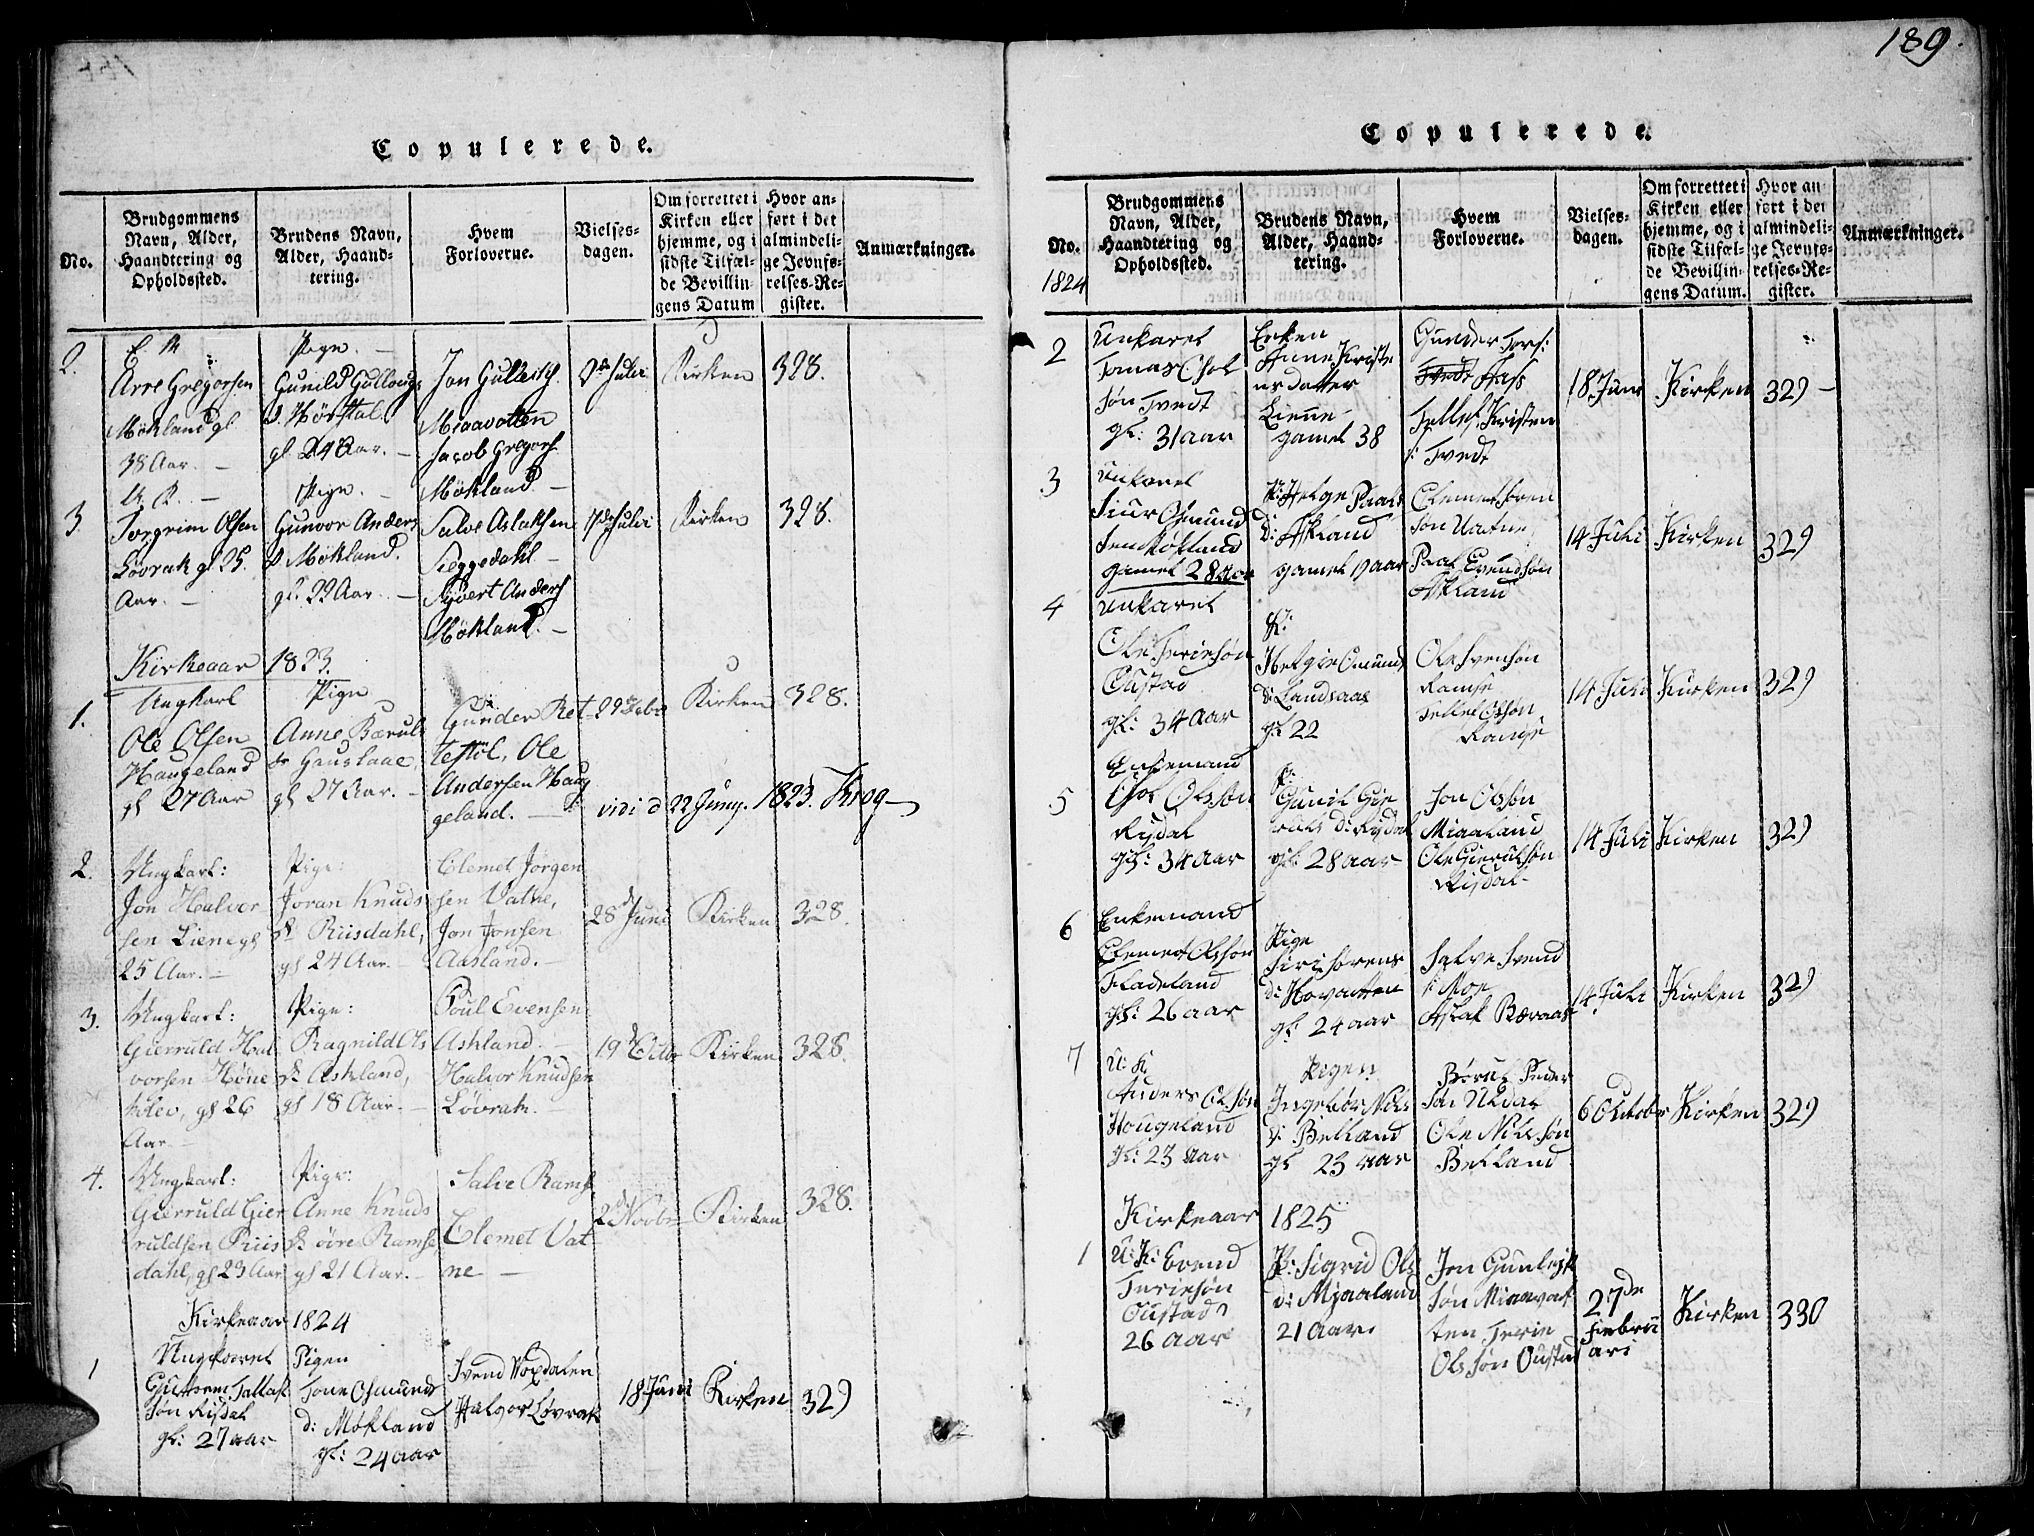 Copulerede.
No.
Brudgommens
Navn, Alder,
Haandtering og
Opholdssted.
Brudens Navn,
Alder, Haand-
tering.
Hvem
Forloverne.
Vielses-
dagen.
Om forrettet i
Kirken eller
hjemme, og i
sidste Tilfæl-
de Bevillin-
gens Datum
Hvor an-
ført i det
almindeli-
ge Jevnfø-
relses-Re-
gister.
Anmærkninger.
2.
Gregorsen
Mökland gl
38 Aar.
Pige.
Gunild
gl. 24 Aar.
Jon
Miaavatten
Jacob Gregors
Mökland
Juli
Kirken
328.
3.
Torgrim Olsen
Lövrak gl 25
Aar.
Pige.
Gunvor Anders
D Mökland
gl. 22 Aar.
Salve Aslaksen
Seggedahl
Anders
Mökland.
17de Juli
Kirken
328.
Kirkeaar 1823.
1.
Ungkarl
Ole Olsen
Haugeland
gl 27 Aar
Pige
Anne
gl 27 Aar.
Gunder Ret-
testöl, Ole
Andersen Haug
geland.
29 Febr
Kirken
328.
vidi d 22 Juny. 1823. Krog
2.
Ungkarl:
Jon Halvor
sen Liene gl
25 Aar.
Pige:
Joran Knuds
Dr Riisdahl,
gl 24 Aar.
Clemet Jörgen
sen Vatne,
Jon Jonsen
Aasland.
28d Juni
Kirken
328.
3.
Ungkarl:
Gierruld Hal
vorsen Höne
gl 26
Aar.
Pige:
Ragnild Ols
Dr Askland,
gl 18 Aar.
Poul Evensen
Askland.
Halvor Knudsen
Lövrak.
19 Octbr
Kirken
328.
4.
Ungkarl:
Gierruld Gier
ruldsen Riis
dahl, gl 23 Aar
Pige:
Anne Knuds
Dr övre Ramse
gl 21 Aar.
Salve Ramse
Clemet Vat
ne
2d Novbr
Kirken
328.
Kirkeaar 1824
1
Ungkarel
Tallak
søn Risdal
gl: 27 aar
Pigen
Tone Osmunds
d: Møkland
gl: 24 aar
Svend
Halvor Løvrak
18 Juni
Kirken
329
189.
Copulerede.
No.
1824
Brudgommens
Navn, Alder,
Haandtering og
Opholdssted.
Brudens Navn,
Alder, Haand-
tering.
Hvem
Forloverne.
Vielses-
dagen.
Om forrettet i
Kirken eller
hjemme, og i
sidste Tilfæl-
de Bevillin-
gens Datum.
Hvor an-
ført i det
almindeli-
ge Jevnfø-
relses-Re-
gister.
Anmærkninger.
2
Unkarel
Tomas
søn Tvedt
gl: 31 aar
Enken
Anne Kriste
nsdatter
Liene
gamel 38
Gunder
Tellef Kristen
s: Tvedt
18 Juni
Kirken
329
3
Unkarel
Osmund
gamel 28 aar
P: Helge Paals
D: Askland
gamel 19 aar
Clemet Jøren
søn Vatne
Paal Evendsøn
Askland
14 Juli
Kirken
329
4
Unkarel
Ole Teriesøn
Oustad
gl: 34 aar
P:
Helgie Osmunds
D: Landsaas
gl 22
Ole Svensøn
Ramse
Tellef Olsøn
Ramse
14 Juli
Kirken
329
5
Enkemand
Olsøn
Risdal
gl: 34 aar
P:
Gunil Gie
rulds D: Risdal
gl: 28 aar
Jon Olsøn
Miaaland
Ole Gierulsøn
Risdal
14 Juli
Kirken
329
6
Enkemand
Clemet Olsson
Fladeland
gl: 26 aar
Pige
Siri Sørens
d: Hovatten
gl: 24 aar
Salve Svend
s: Moe
Aslak Bæraas
14 Juli
Kirken
329
7
U: K
Anders Olsøn
Hougeland
gl: 23 aar
Pigen:
Ingebør Nils
D: Belland
gl 23 aar
Børul Peder
søn Uldal
Ole Nilssøn
Belland
6 Octobr
Kirken
329
Kirkeaar 1825
1
U: K: Evend
Teriesøn
Oustad
26 aar
P: Sigrid Ols
d: Mjaaland
21 aar.
Jon Gunleik
søn Miaavat
ten Terie
Olssøn Oustad
27de
Februari
Kirken
330